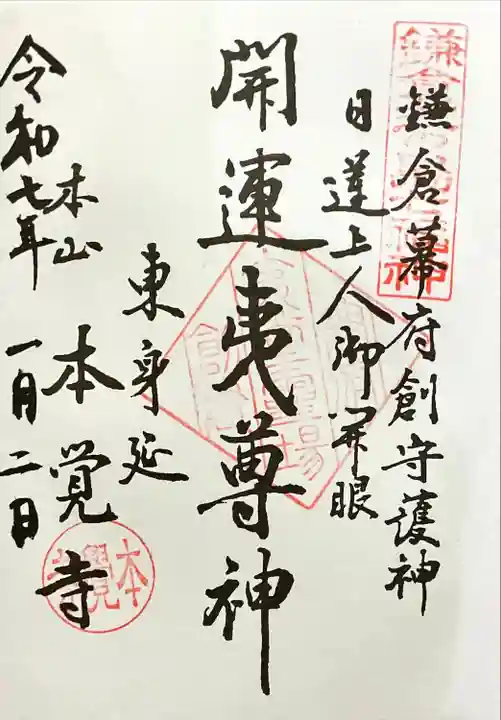 鎌倉幕府創守護神
日蓮上人御開眼
開運夷尊神
東身延
本山
本覚寺
令和七年
一月二日
本覺寺